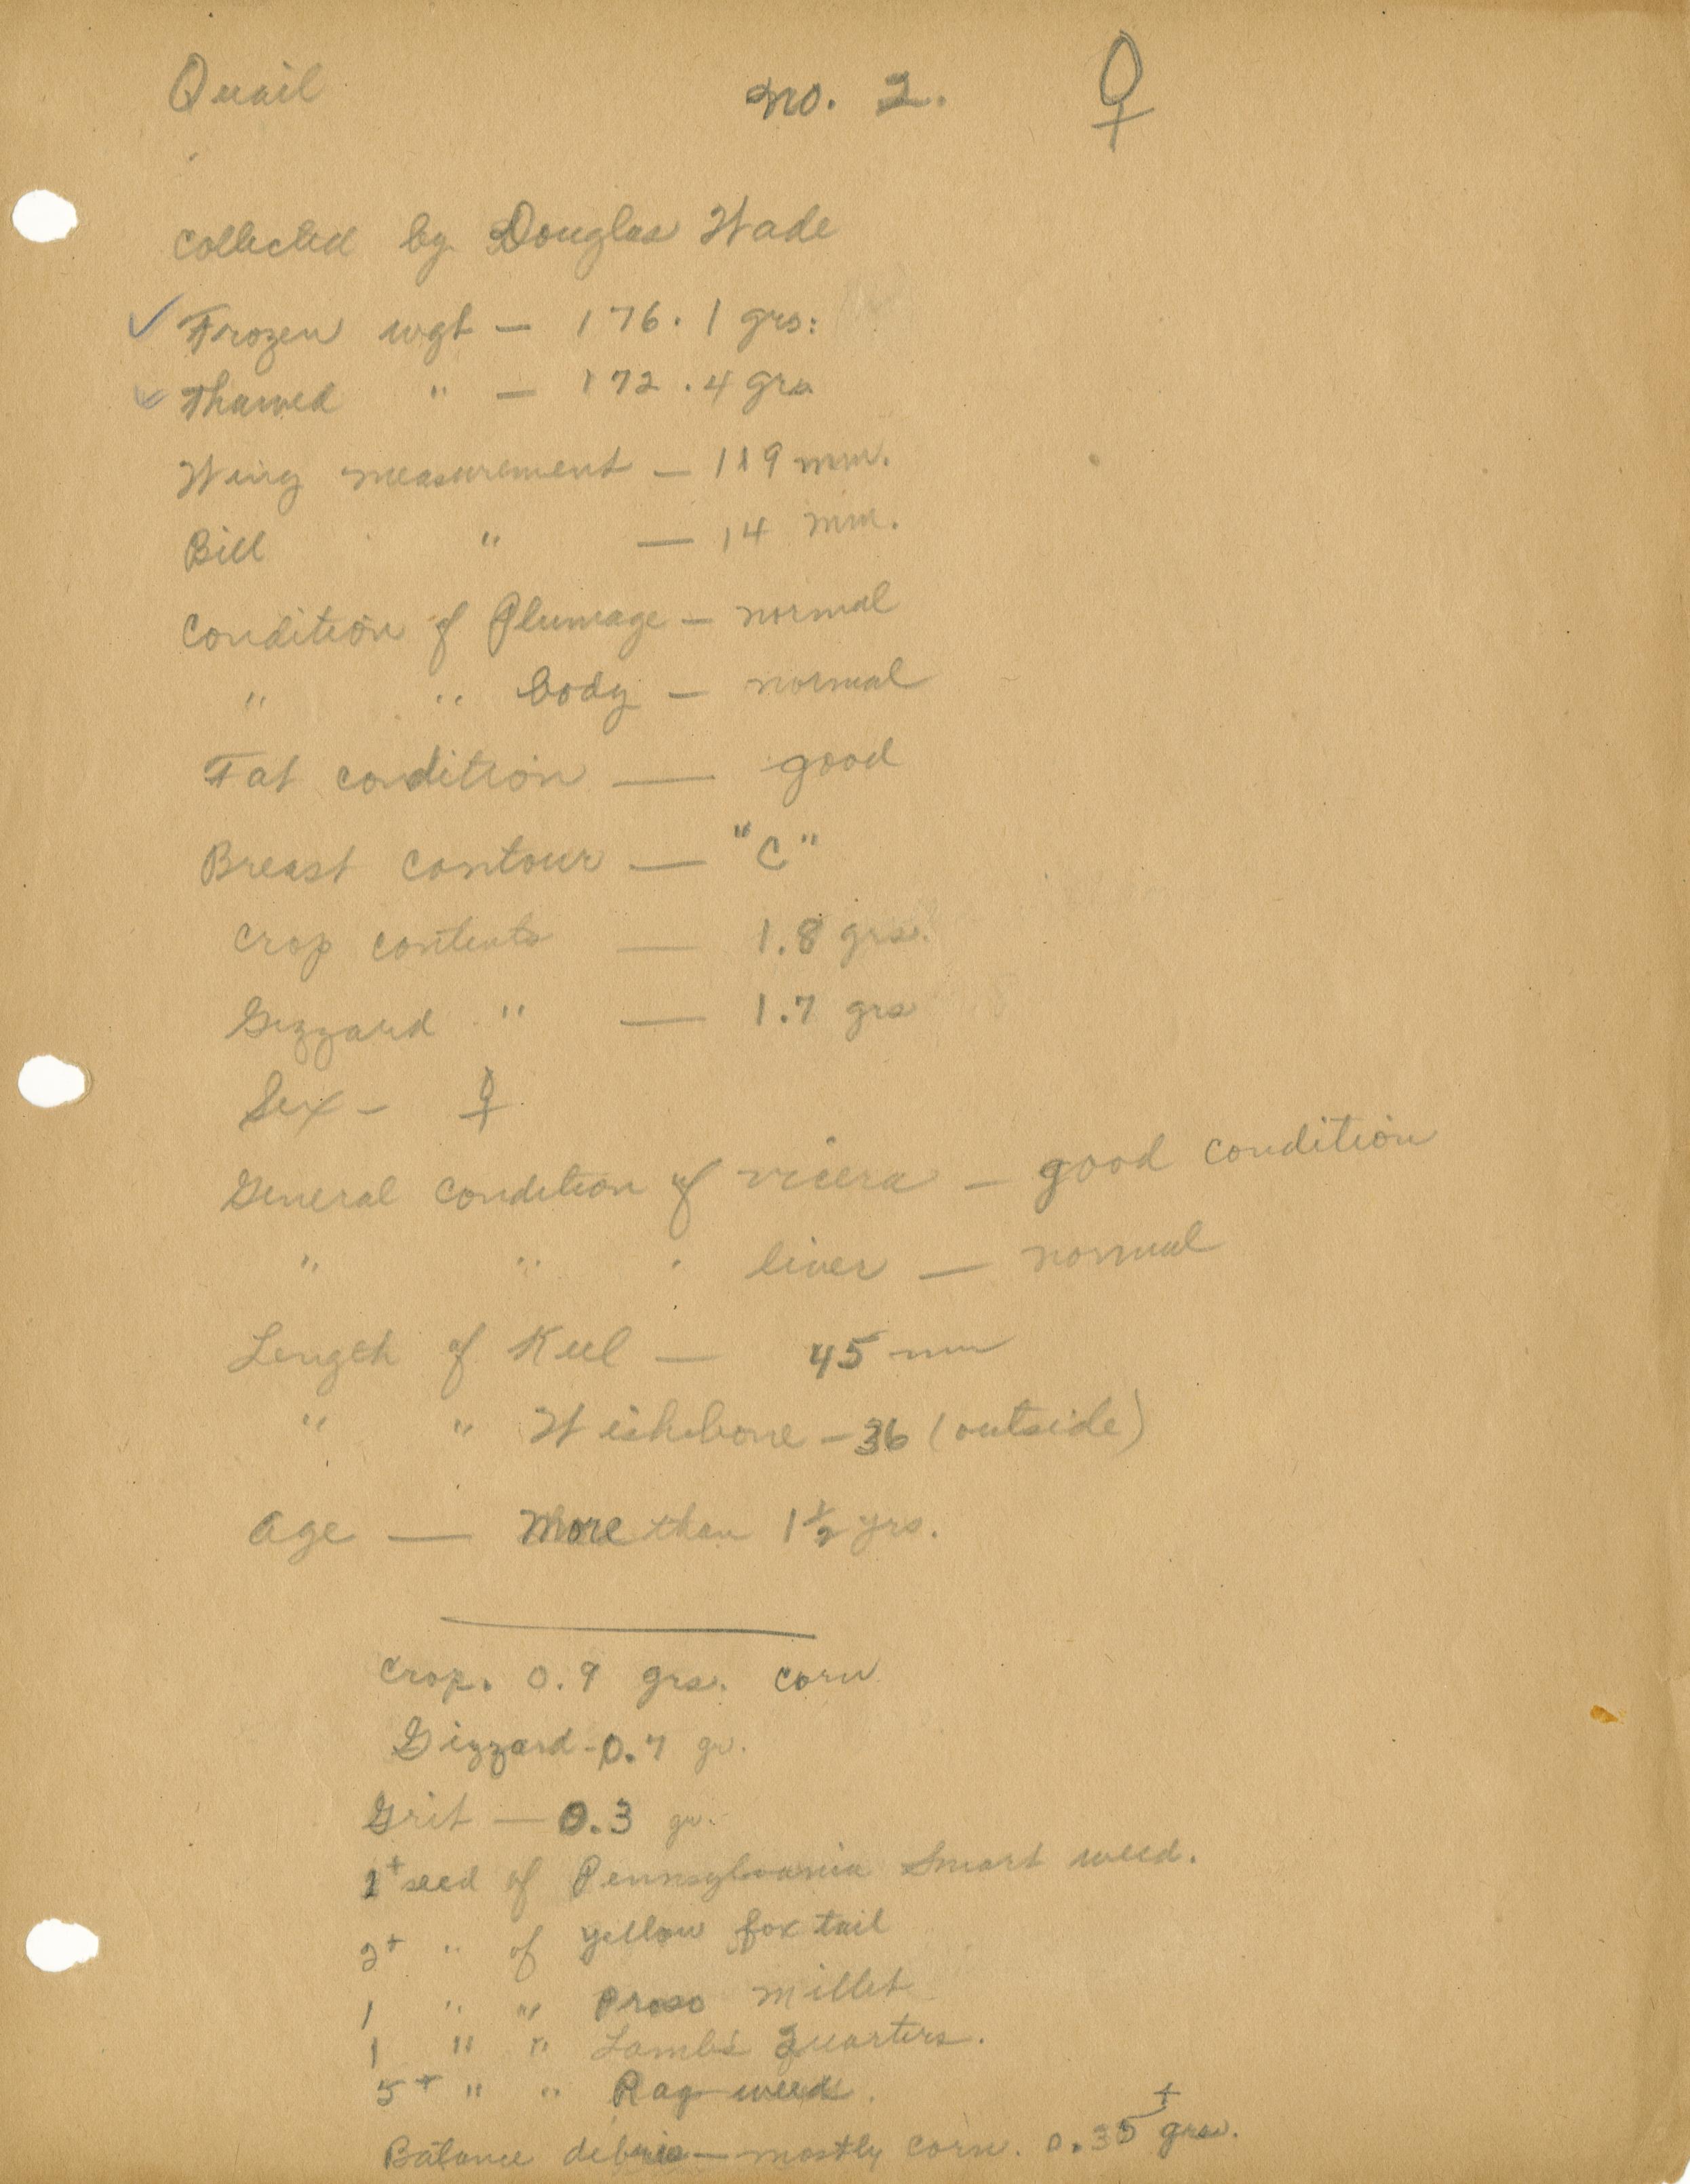 Quail no. 2. ♀
Collected by Douglas Wade
✓ Frozen wgt — 176.1 grs.
✓ Thawed " — 172.4 grs
Wing measurement — 119 mm.
Bill " — 14 mm.
Condition of Plumage — normal
" " body — normal
Fat condition — good
Breast contour — "C"
Crop contents — 1.8 grs.
Gizzard " — 1.7 grs
Sex — ♀
General condition of vicera — good condition
" " " liver — normal
Length of Keel — 45 mm
" " Wishbone — 36 (outside)
Age — More than 1½ yrs.
Crop. 0.9 grs. corn
Gizzard - 0.7 gr.
Grit — 0.3 gr.
1+ seed of Pennsylvania Smart weed.
2+ " of yellow fox tail
1 " " Proso millet
1 " " Lamb's Quarters.
5+ " " Rag weed.
Balance debris — mostly corn. 0.35+ grs.